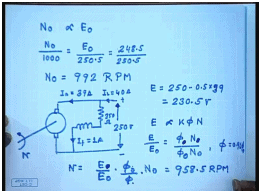 N₀ ∝ E₀
N₀/1000 = E₀/250.5 = 248.5/250.5
N₀ = 992 RPM
I_L = 40A
250V
I_f = 1A
N
E = 250 - 0.5×39
= 230.5 V
E ∝ KΦN
E/E₀ = Φ₀ N₀/Φ₀ N₀
N = E₀/E₀ · Φ₀/Φ · N₀ = 958.5 RPM